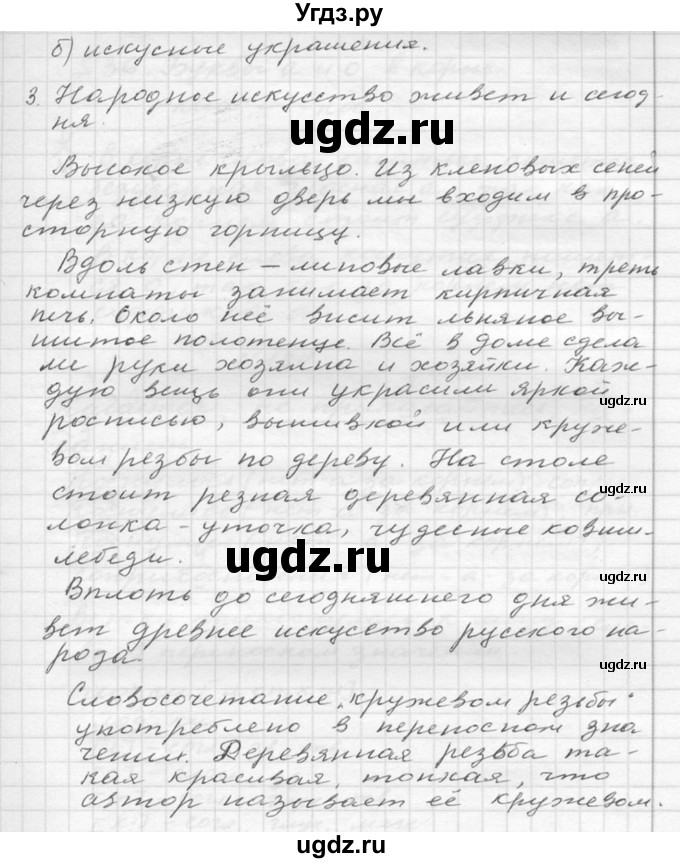 Угдз.ру
б) искусные украшения.
3. Народное искусство живёт и сегод-
ня.
ugdz.ru
Высокое крыльцо. Из кленовых сеней
через низкую дверь мы входим в про-
сторную горницу.
Вдоль стен – липовые лавки, треть
комнаты занимает кирпичная
печь. Около неё висит льняное вы-
шитое полотенце. Всё в доме сдела
ли руки хозяина и хозяйки. Каж-
дую вещь они украсили яркой
ugdz.ru
росписью, вышивкой или круже-
вом резьбы по дереву. На столе
стоит резная деревянная со-
ugdz.ru
лонка - уточка, чудесные ковши-
лебеди.
ugdz.ru
Вплоть до сегодняшнего дня жи-
ugdz.ru
вёт древнее искусство русского на-
рода.
ugdz.ru
Словосочетание „кружевом резьбы"
употреблено в переносном зна
чении. Деревянная резьба та-
ugdz.ru
кая красивая, тонкая, что
автор называет её кружевом.
ugdz.ru